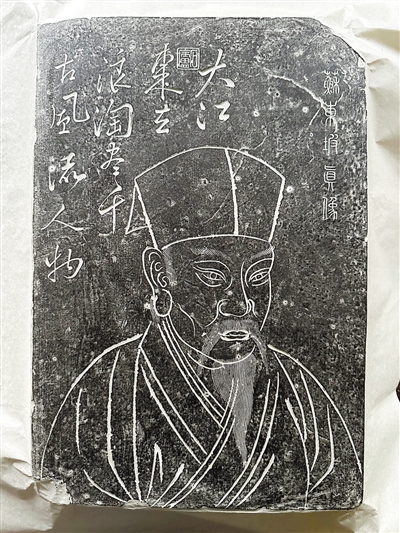 蘇東坡眞像
大江
東去
浪淘盡千
古風流人物